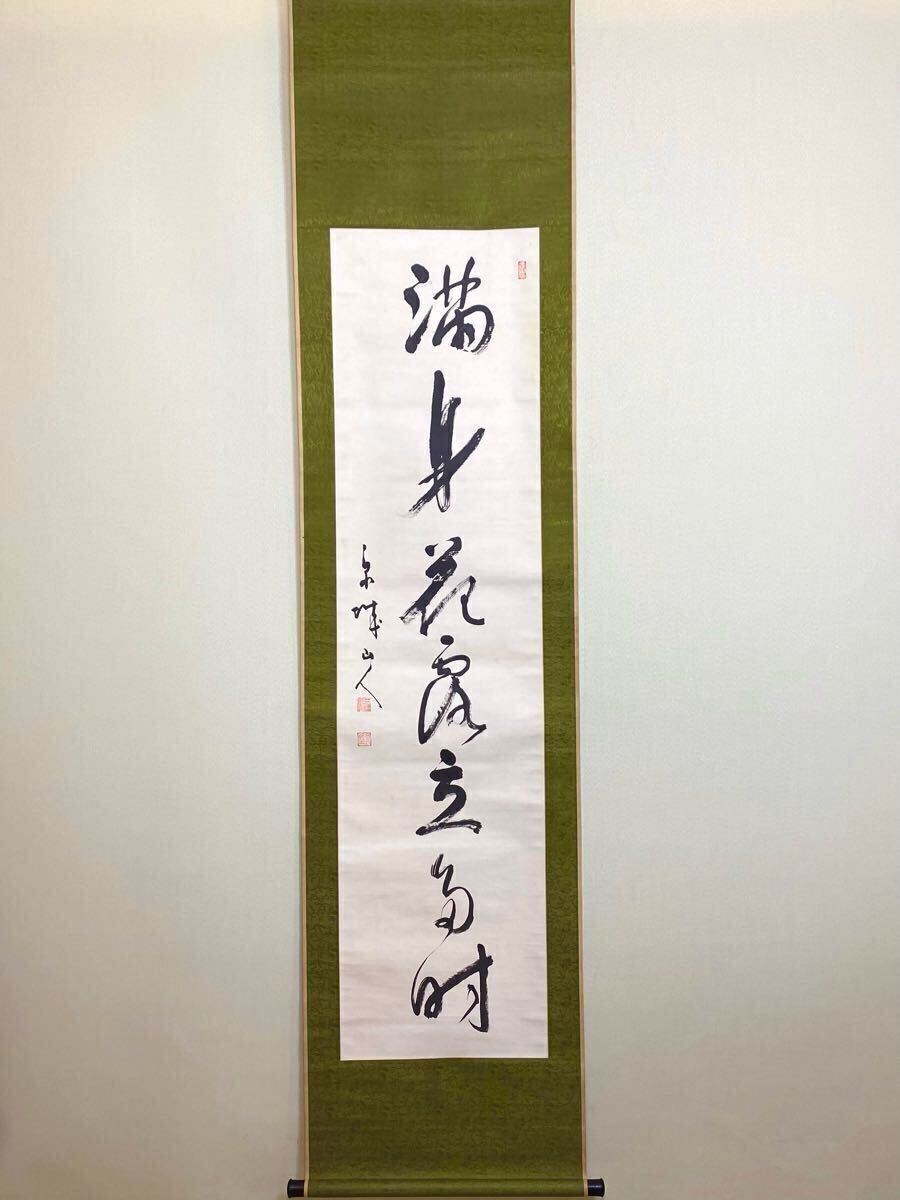 満身花露立多時
京城山人